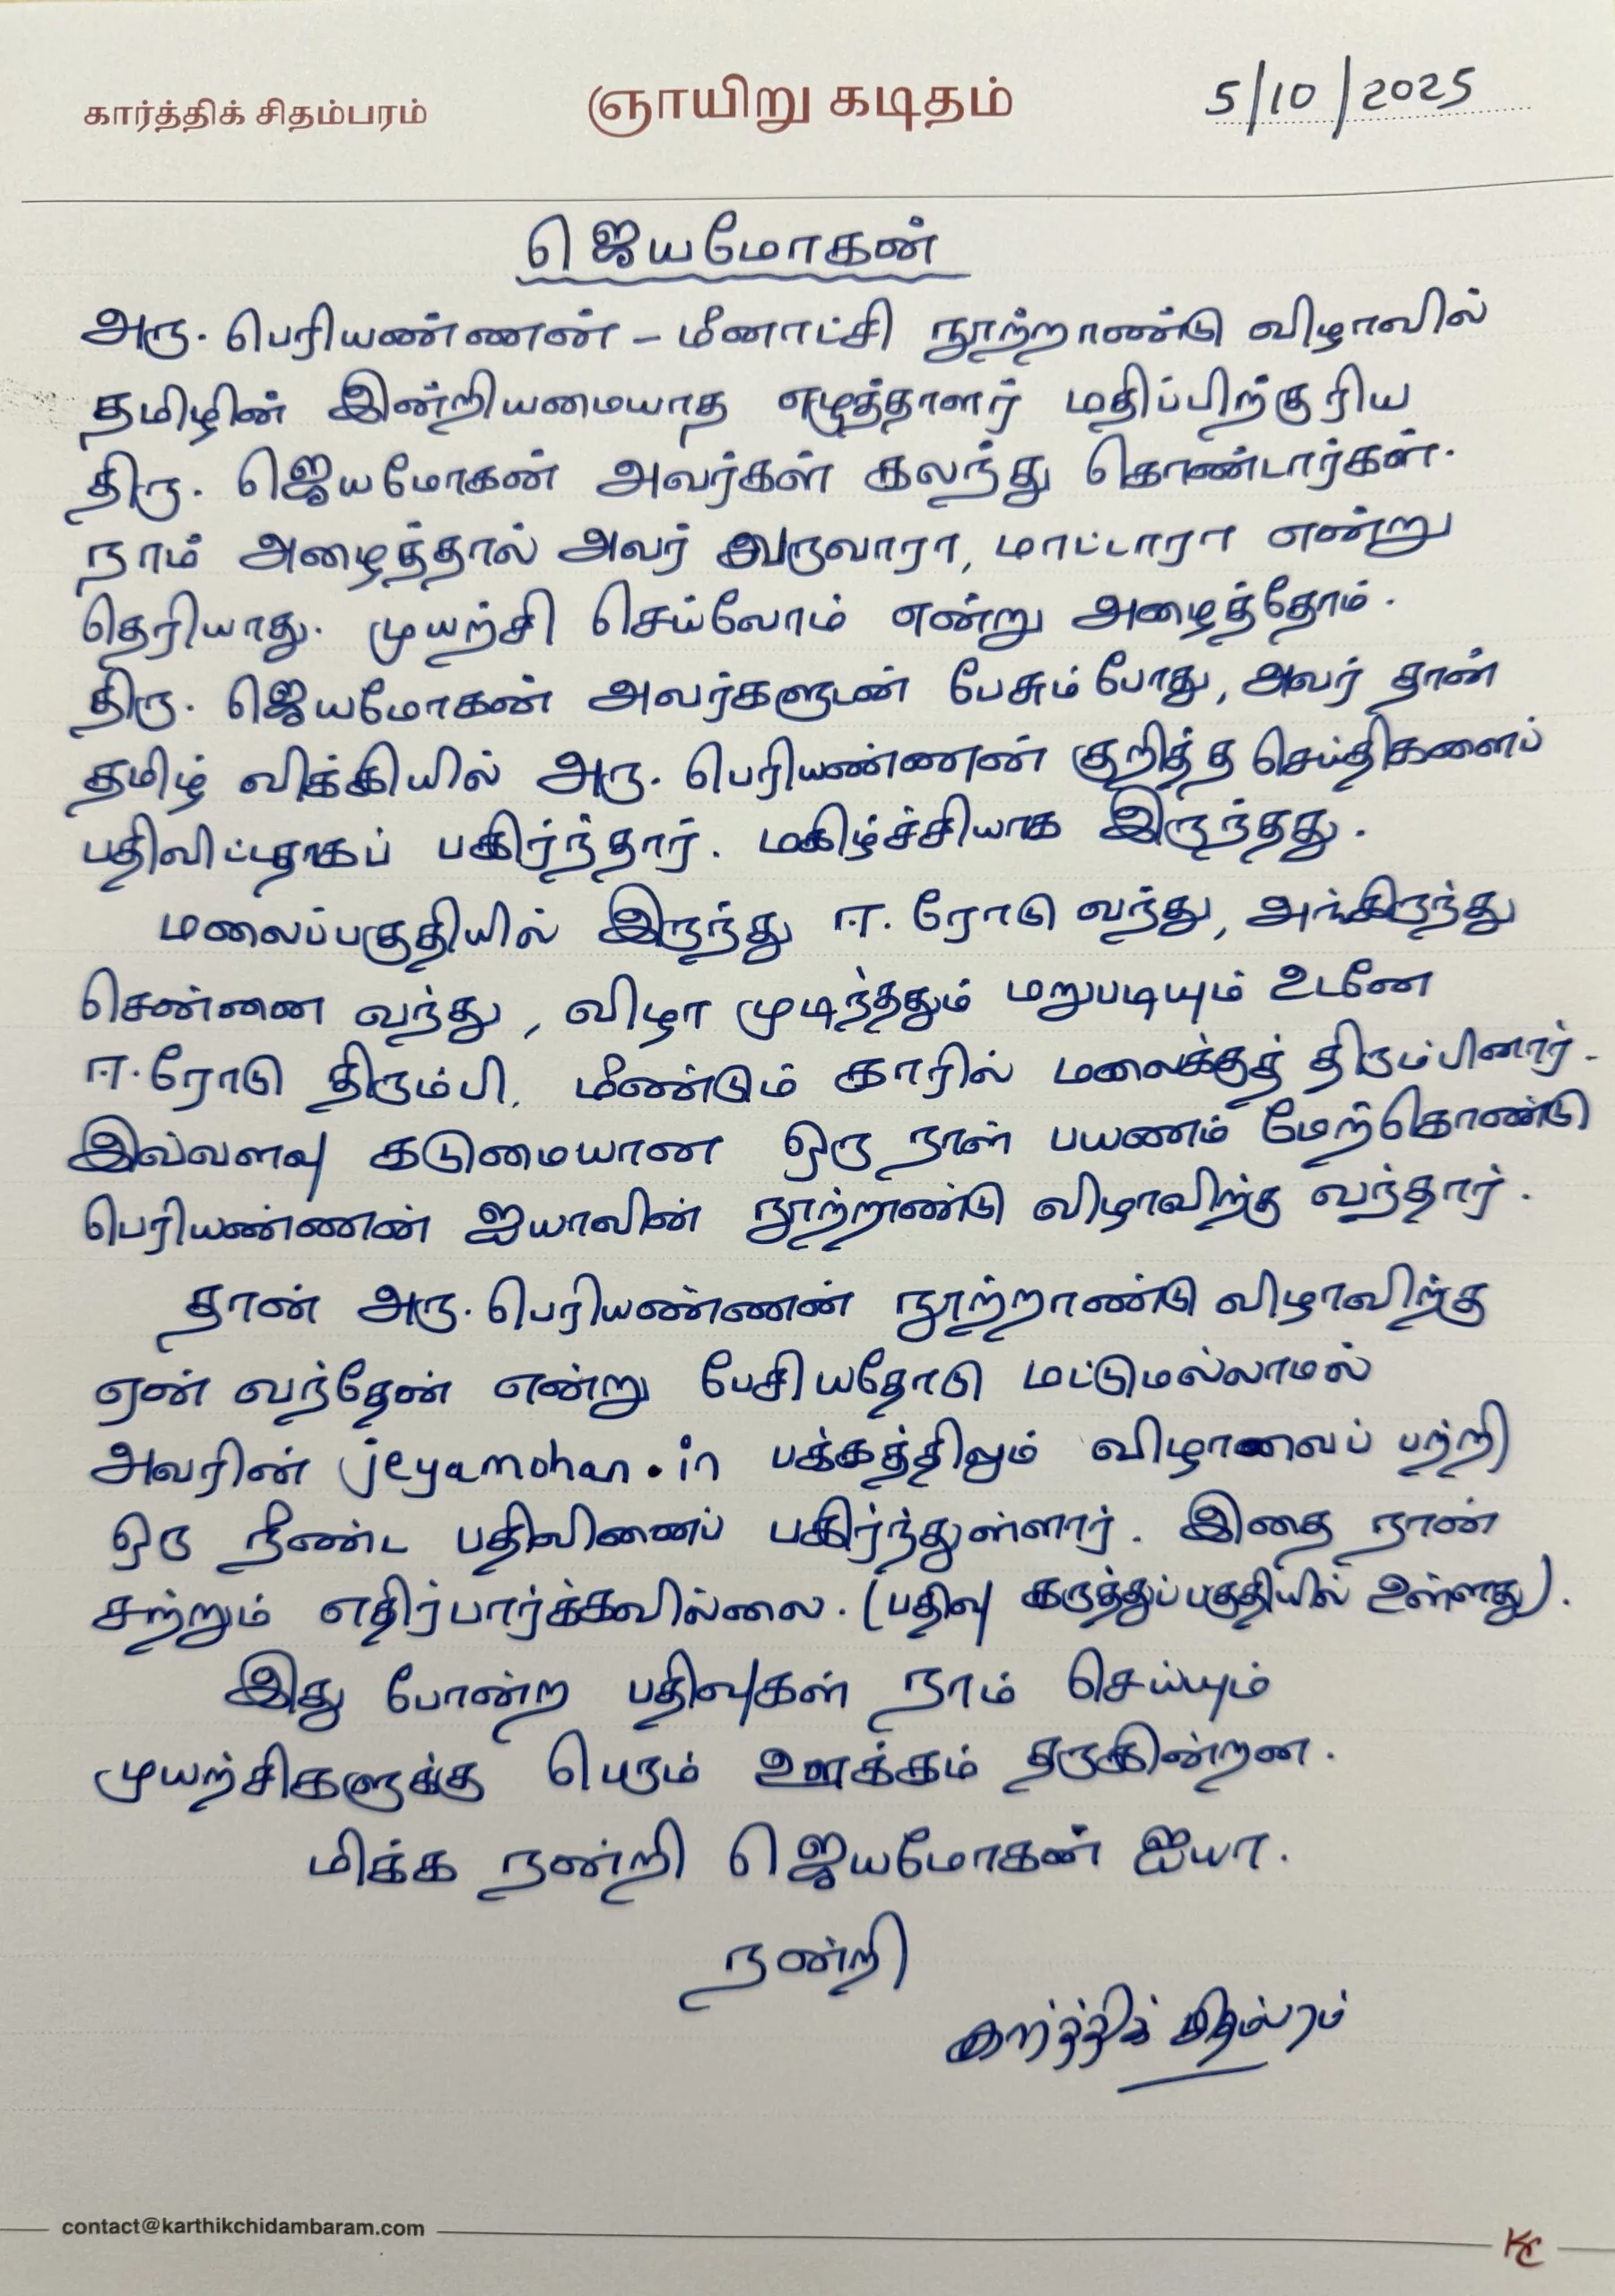 கார்த்திக் சிதம்பரம்
ஞாயிறு கடிதம்
5/10/2025
ஜெயமோகன்
அரு. பெரியண்ணன் – மீனாட்சி நூற்றாண்டு விழாவில்
தமிழின் இன்றியமையாத எழுத்தாளர் மதிப்பிற்குரிய
திரு. ஜெயமோகன் அவர்கள் கலந்து கொண்டார்கள்.
நாம் அழைத்தால் அவர் வருவாரா, மாட்டாரா என்று
தெரியாது. முயற்சி செய்வோம் என்று அழைத்தோம்.
திரு. ஜெயமோகன் அவர்களுடன் பேசும்போது, அவர் தான்
தமிழ் விக்கியில் அரு. பெரியண்ணன் குறித்த செய்திகளைப்
பதிவிட்டதாகப் பகிர்ந்தார். மகிழ்ச்சியாக இருந்தது.
மலைப்பகுதியில் இருந்து ஈ.ரோடு வந்து, அங்கிருந்து
சென்னை வந்து, விழா முடிந்ததும் மறுபடியும் உடனே
ஈ.ரோடு திரும்பி, மீண்டும் காரில் மலைக்குத் திரும்பினார்.
இவ்வளவு கடுமையான ஒரு நாள் பயணம் மேற்கொண்டு
பெரியண்ணன் ஐயாவின் நூற்றாண்டு விழாவிற்கு வந்தார்.
தான் அரு. பெரியண்ணன் நூற்றாண்டு விழாவிற்கு
ஏன் வந்தேன் என்று பேசியதோடு மட்டுமல்லாமல்
அவரின் jeyamohan.in பக்கத்திலும் விழாவைப் பற்றி
ஒரு நீண்ட பதிவினைப் பகிர்ந்துள்ளார். இதை நான்
சற்றும் எதிர்பார்க்கவில்லை. (பதிவு கருத்துப்பகுதியில் உள்ளது).
இது போன்ற பதிவுகள் நாம் செய்யும்
முயற்சிகளுக்கு பெரும் ஊக்கம் தருகின்றன.
மிக்க நன்றி ஜெயமோகன் ஐயா.
நன்றி
கார்த்திக் சிதம்பரம்
contact@karthikchidambaram.com
KC